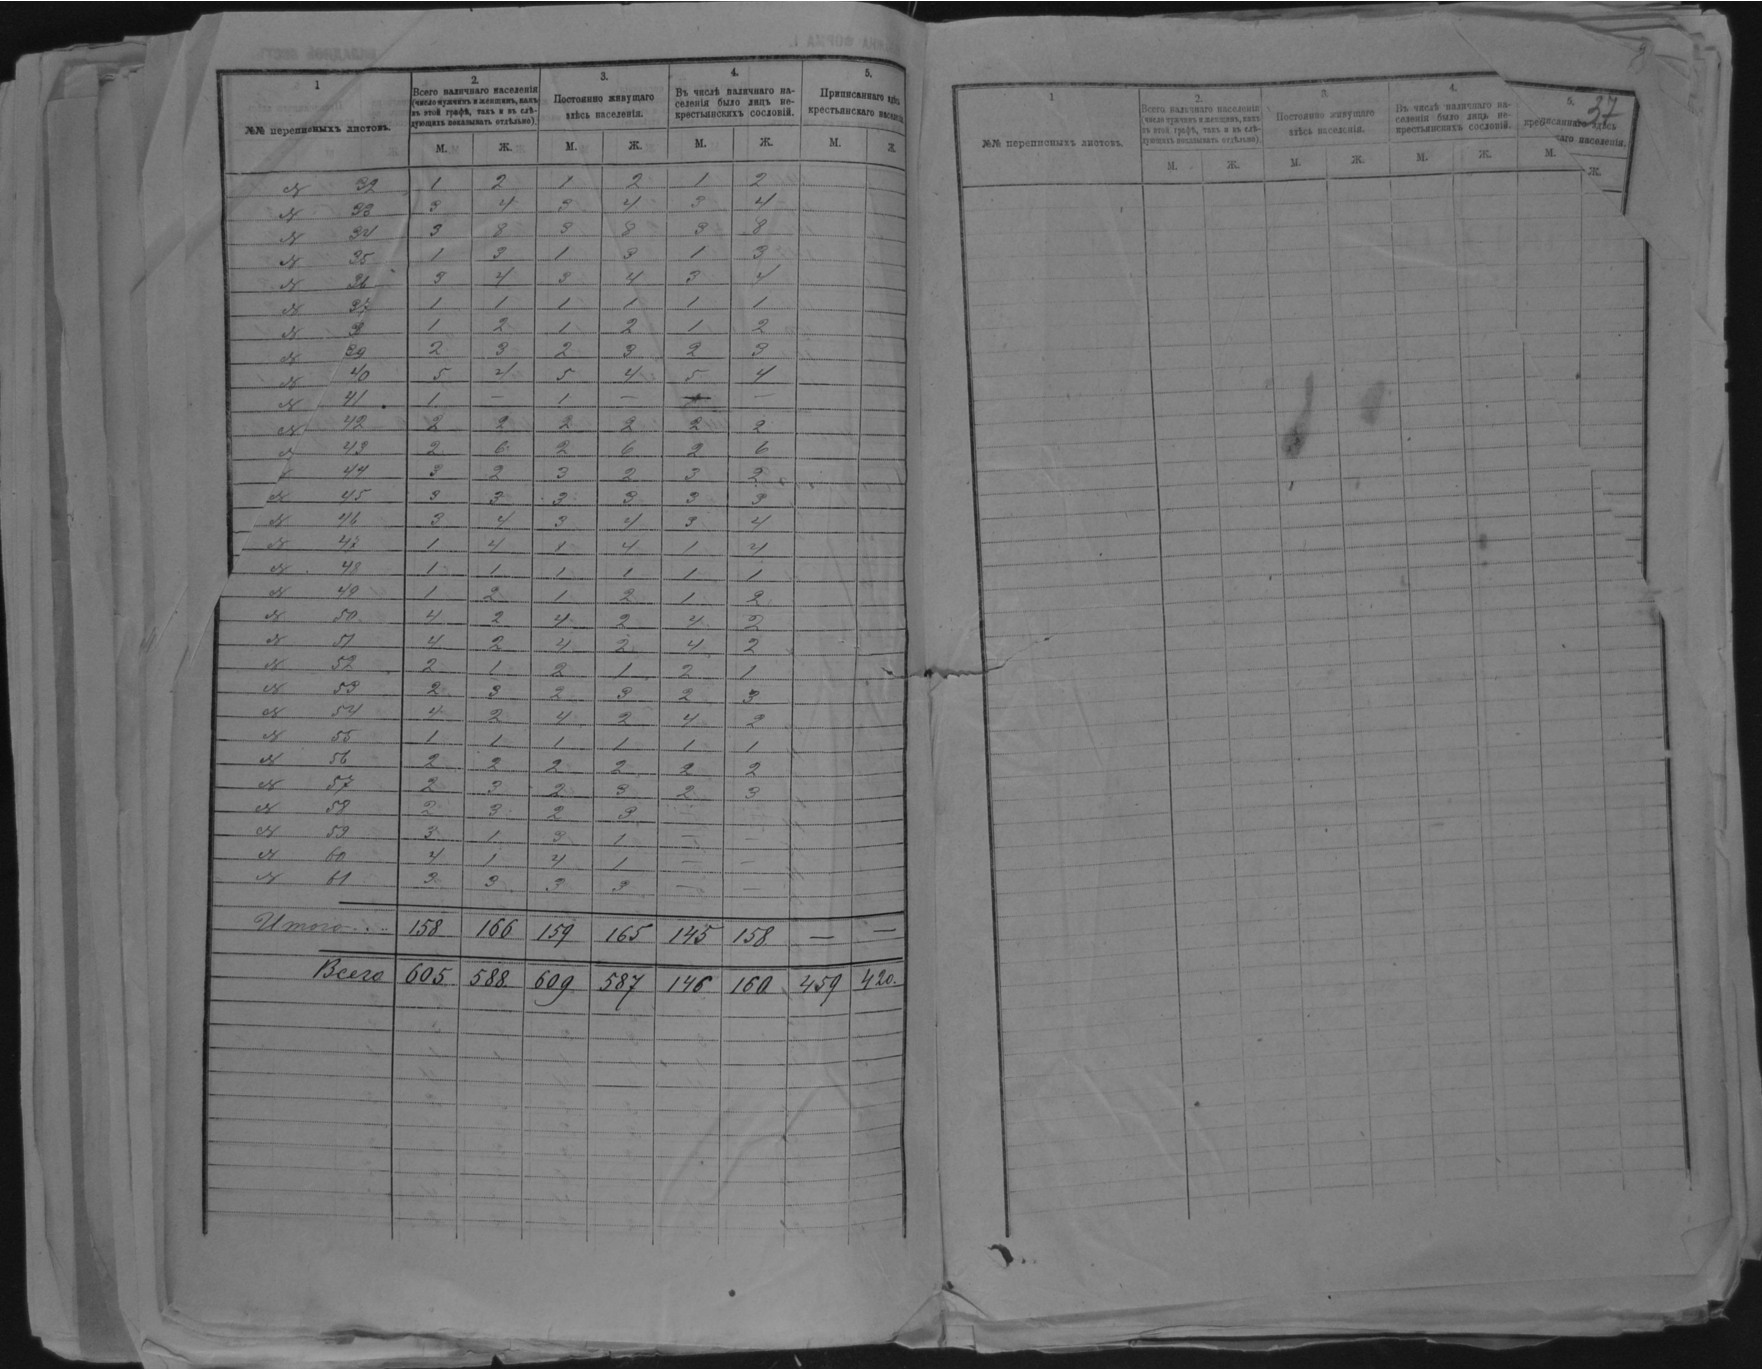 1 2. 3. 4. 5.
№№ переписныхъ листовъ. Всего наличнаго населенія (число мужчинъ и женщинъ, какъ въ этой графѣ, такъ и въ слѣдующихъ показывать отдѣльно). Постоянно живущаго здѣсь населенія. Въ числѣ наличнаго населенія было лицъ некрестьянскихъ сословій. Приписаннаго здѣсь крестьянскаго населенія.
М. Ж. М. Ж. М. Ж. М. Ж.
№ 32 1 2 1 2 1 2
№ 33 3 4 3 4 3 4
№ 34 3 8 3 8 3 8
№ 35 1 3 1 3 1 3
№ 36 3 4 3 4 3 4
№ 37 1 1 1 1 1 1
№ 3 1 2 1 2 1 2
№ 39 2 3 2 3 2 3
№ 40 5 4 5 4 5 4
№ 41 1 — 1 — —
№ 42 2 2 2 2 2 2
№ 43 2 6 2 6 2 6
№ 44 3 2 3 2 3 2
№ 45 3 3 3 3 3 3
№ 46 3 4 3 4 3 4
№ 47 1 4 1 4 1 4
№ 48 1 1 1 1 1 1
№ 49 1 2 1 2 1 2
№ 50 4 2 4 2 4 2
№ 51 4 2 4 2 4 2
№ 52 2 1 2 1 2 1
№ 53 2 3 2 3 2 3
№ 54 4 2 4 2 4 2
№ 55 1 1 1 1 1 1
№ 56 2 2 2 2 2 2
№ 57 2 3 2 3 2 3
№ 58 2 3 2 3 — —
№ 59 3 1 3 1 — —
№ 60 4 1 4 1 — —
№ 61 3 3 3 3 — —
Итого.... 158 166 159 165 145 158 — —
Всего 605 588 609 587 146 160 459 420.
37
1 2. 3. 4. 5.
№№ переписныхъ листовъ. Всего наличнаго населенія (число мужчинъ и женщинъ, какъ въ этой графѣ, такъ и въ слѣдующихъ показывать отдѣльно). Постоянно живущаго здѣсь населенія. Въ числѣ наличнаго населенія было лицъ некрестьянскихъ сословій. здѣсь населенія.
М. Ж. М. Ж. М. Ж. М. Ж.